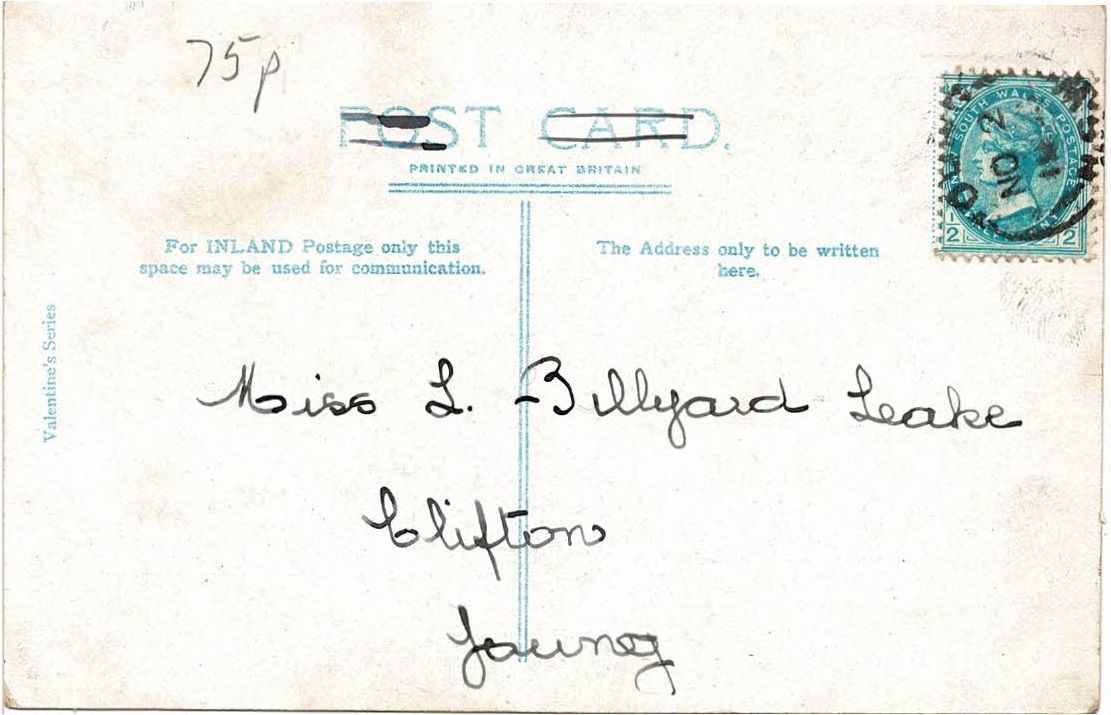 75p
POST CARD.
PRINTED IN GREAT BRITAIN
NEW SOUTH WALES POSTAGE
NO 2
1/2 1/2
For INLAND Postage only this
space may be used for communication.
The Address only to be written
here.
Valentine's Series
Miss L. Billyard Leake
Clifton
Young